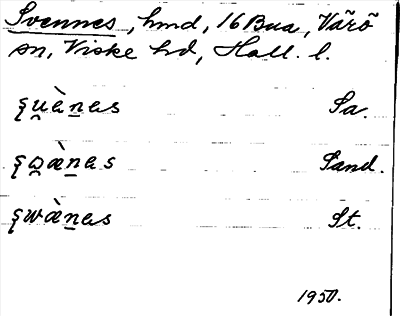 Svennes, hmd, 16 Bua, Värö
sn, Viske hd, Hall. l.
ȿu̯æ̀nas Sa.
ȿo̯æ̀nas Sand.
ȿwæ̀nas St.
1950.